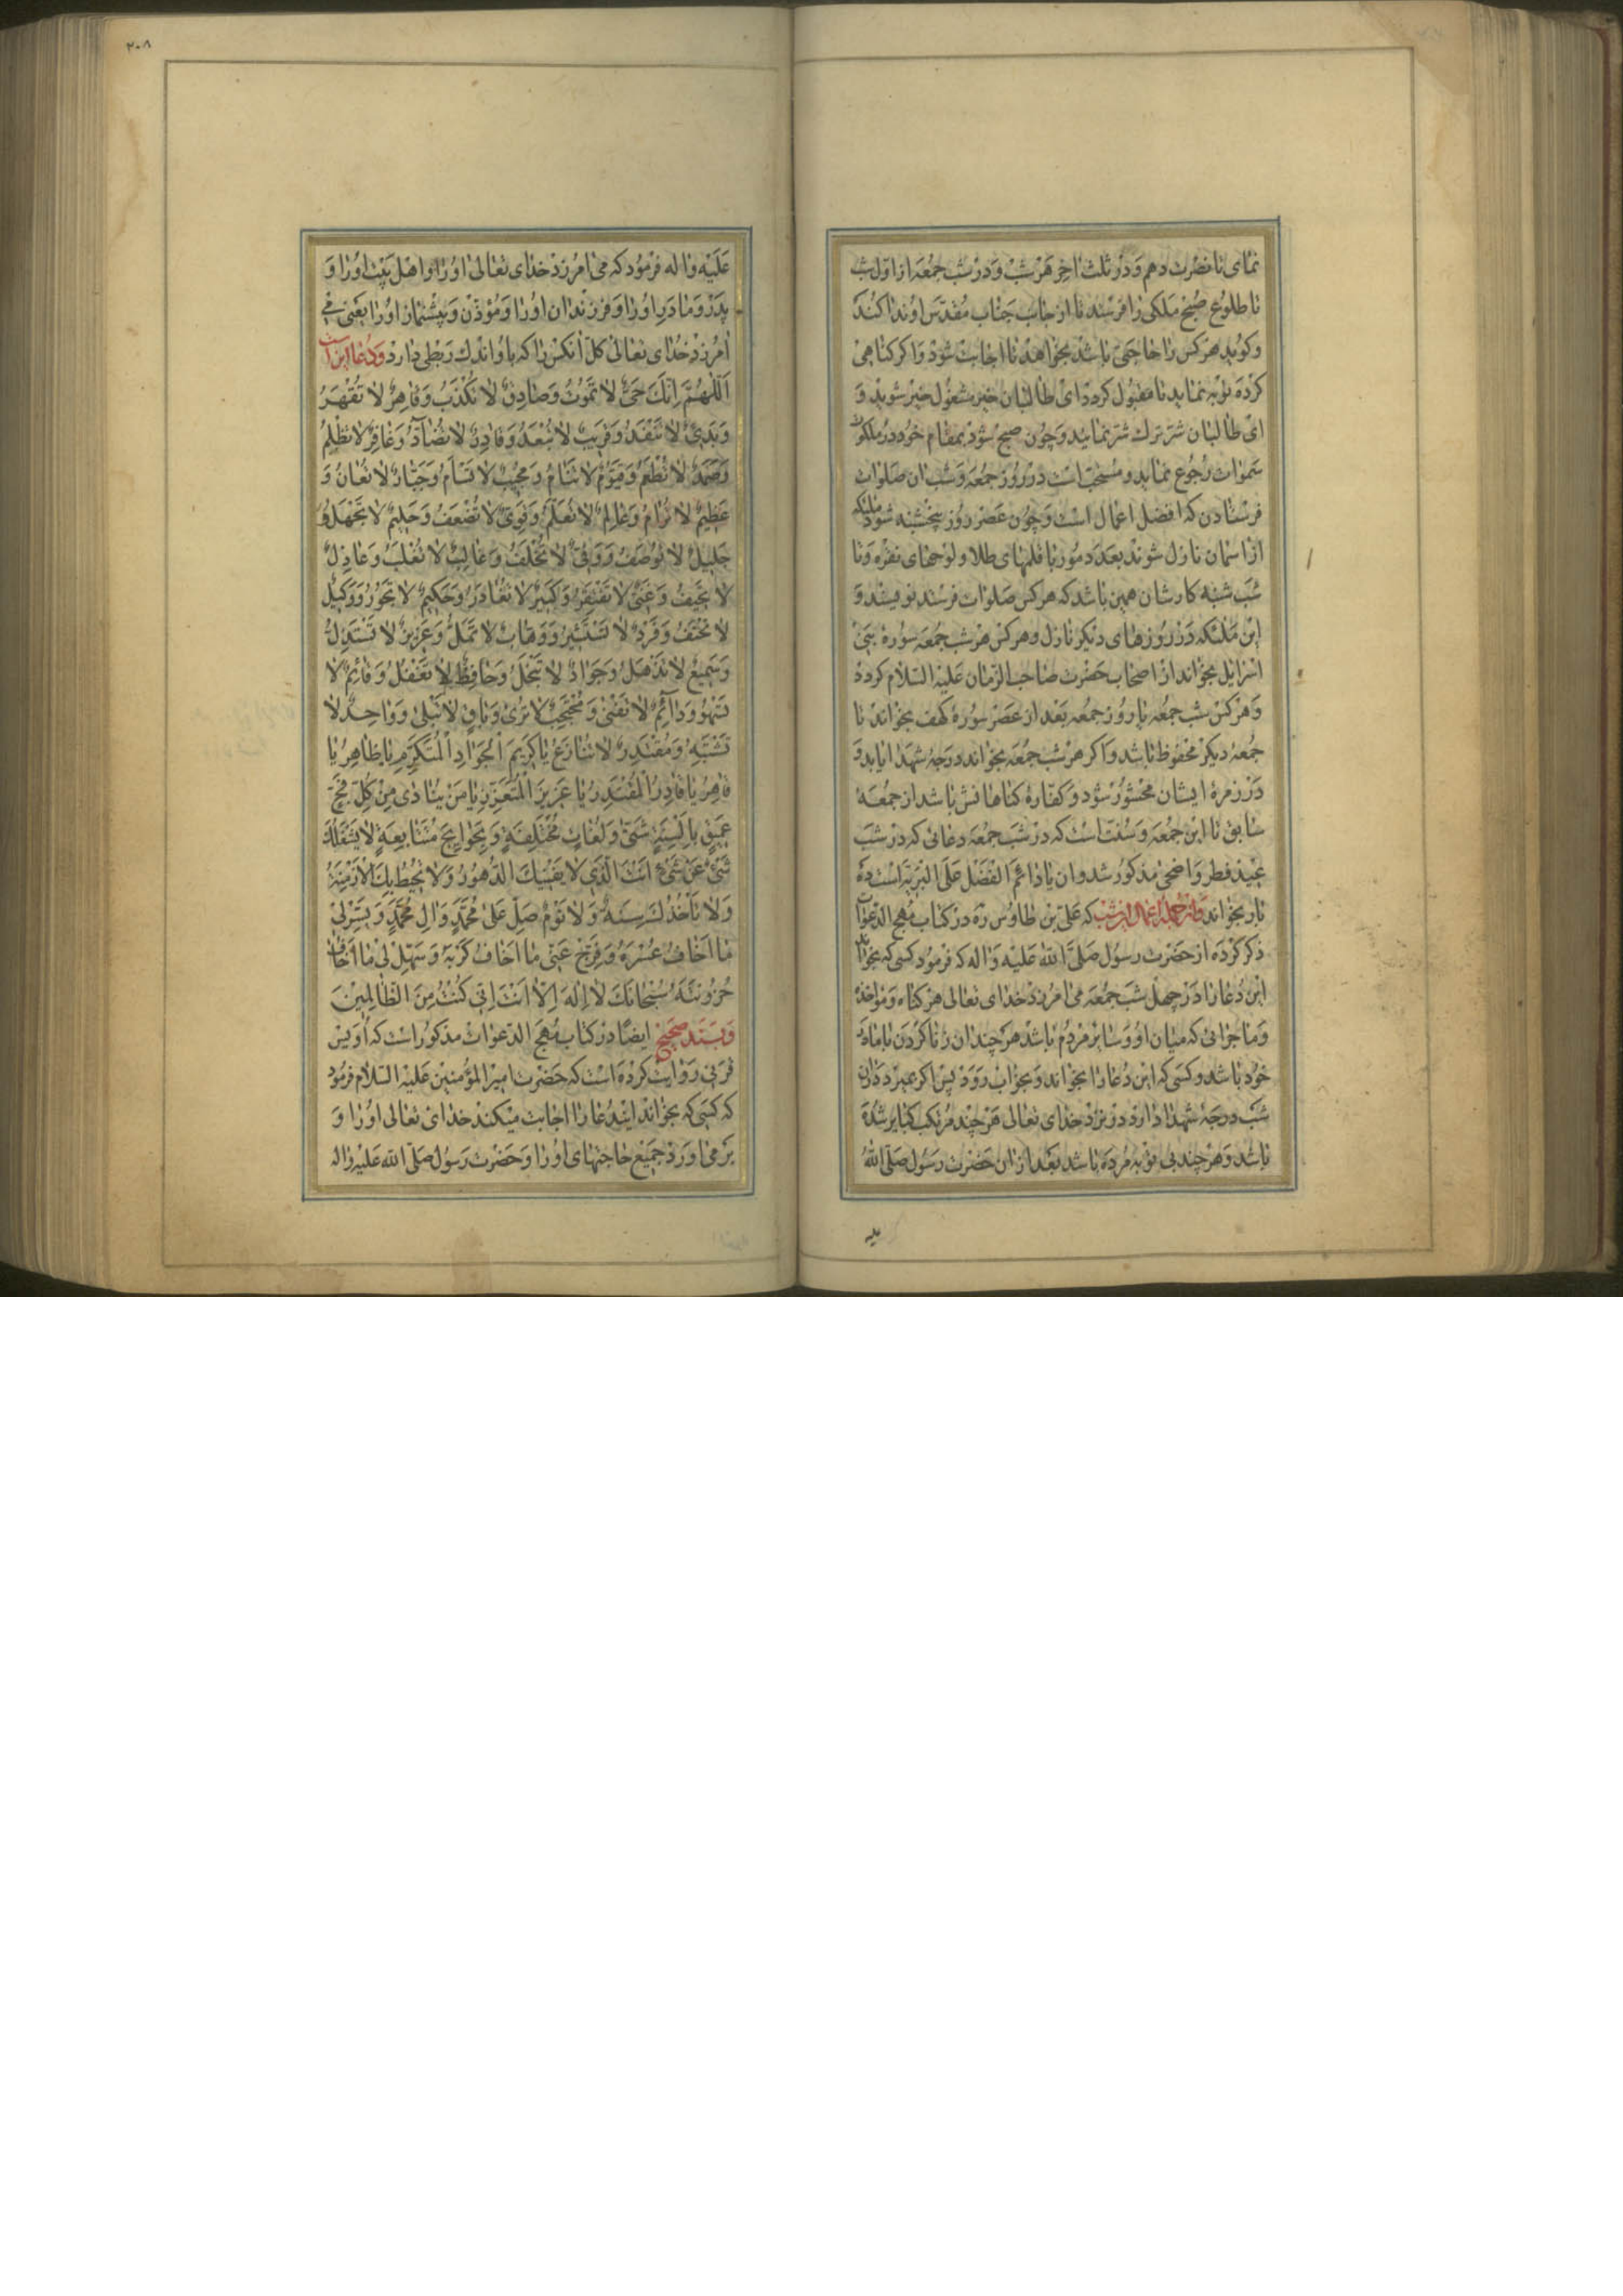 نمای تا نصرت دهم و در ثلث اخر هر شب و در شب جمعه از اول شب
تا طلوع صبح ملکی را فرستد تا از جانب جناب مقدس او ندا کند
و کوید هر کس را حاجتی باشد بخواهد تا اجابت شود و اکر کناهی
کرده توبه نماید تا مقبول کردد ای طالبان خیر مشغول خیر شوید و
ای طالبان شر ترک شر نمائید و چون صبح شود بمقام خود در ملکوت
سموات رجوع نماید و مستحب است در روز جمعه و شب ان صلوات
فرستادن که افضل اعمال است و چون عصر روز پنجشنبه شود ملئکه
از اسمان نازل شوند بعدد مور با قلمهای طلا و لوحهای نقره و تا
شب شنبه کارشان همین باشد که هر کس صلوات فرستد نویسند و
این ملئکه در روزهای دیکر نازل و هر کس هر شب جمعه سوره بنی
اسرایل بخواند از اصحاب حضرت صاحب الزمان علیه السلام کردد
و هر کس شب جمعه یا روز جمعه بعد از عصر سوره کهف بخواند تا
جمعه دیکر محفوظ باشد و اکر هر شب جمعه بخواند درجه شهدا یابد و
در زمره ایشان محشور شود و کفاره کناهانش باشد از جمعه
سابق تا این جمعه و سنت است که در شب جمعه دعائی که در شب
عید فطر و اضحی مذکور شد و ان یا دائم الفضل علی البریة است ده
بار بخواند و از جمله اعمال این شب که علی بن طاوس ره در کتاب مهج الدعوات
ذکر کرده از حضرت رسول صلی الله علیه و اله که فرمود کسی که بخواند
این دعا را در چهل شب جمعه می امرزد خدای تعالی هر کناه و مواخذه
و ماجرائی که میان او و سایر مردم باشد هر چند ان زنا کردن با مادر
خود باشد و کسی که این دعا را بخواند و بخواب رود پس اکر بمیرد در ان
شب درجه شهدا دارد در نزد خدای تعالی هر چند مرتکب کبایر شده
باشد و هر چند بی توبه مرده باشد بعد از ان حضرت رسول صلی الله
علیه
۲۰۸
علیه و اله فرمود که می امرزد خدای تعالی او را و اهل بیت او را و
پدر و مادر او را و فرزندان او را و موذن و پیشنماز او را یعنی می
امرزد خدای تعالی کل انکس را که با او اندک ربطی دارد و دعا این است
اللهم انك حی لا تموت و صادق لا تکذب و قاهر لا تقهر
و بدیئ لا تنفد و قریب لا تبعد و قادر لا تضاد و غافر لا تظلم
و صمد لا تطعم و قیوم لا تنام و مجیب لا تسام و جبار لا تعان و
عظیم لا ترام و عالم لا تعلم و قوی لا تضعف و حلیم لا تجهل و
جلیل لا توصف و وفی لا تخلف و غالب لا تغلب و عادل
لا تحیف و غنی لا تفتقر و کبیر لا تغادر و حکیم لا تجور و وکیل
لا تخفف و فرد لا تستشیر و وهاب لا تمل و عزیز لا تستذل
و سمیع لا تذهل و جواد لا تبخل و حافظ لا تغفل و قائم لا
تسهو و دائم لا تفنی و محتجب لا تری و باق لا تبلی و واحد لا
تشتبه و مقتدر لا تنازع یا کریم الجواد المتکرم یا ظاهر یا
قاهر یا قادر المقتدر یا عزیز المتعزز یا من ینادی من کل فج
عمیق بالسنة شتی و لغات مختلفة و بحوایج متتابعة لا یشغلك
شئ عن شئ انت الذی لا یفنیك الدهور و لا تحیط بك الازمنة
و لا تاخذك سنة و لا نوم صل علی محمد و ال محمد و یسر لی
ما اخاف عسره و فرج عنی ما اخاف کربه و سهل لی ما اخاف
حزونته سبحانك لا اله الا انت انی کنت من الظالمین
و بسند صحیح ایضا در کتاب مهج الدعوات مذکور است که اویس
قرنی روایت کرده است که حضرت امیر المؤمنین علیه السلام فرمود
که کسی که بخواند ایندعا را اجابت میکند خدای تعالی او را و
بر می اورد جمیع حاجتهای او را و حضرت رسول صلی الله علیه و اله